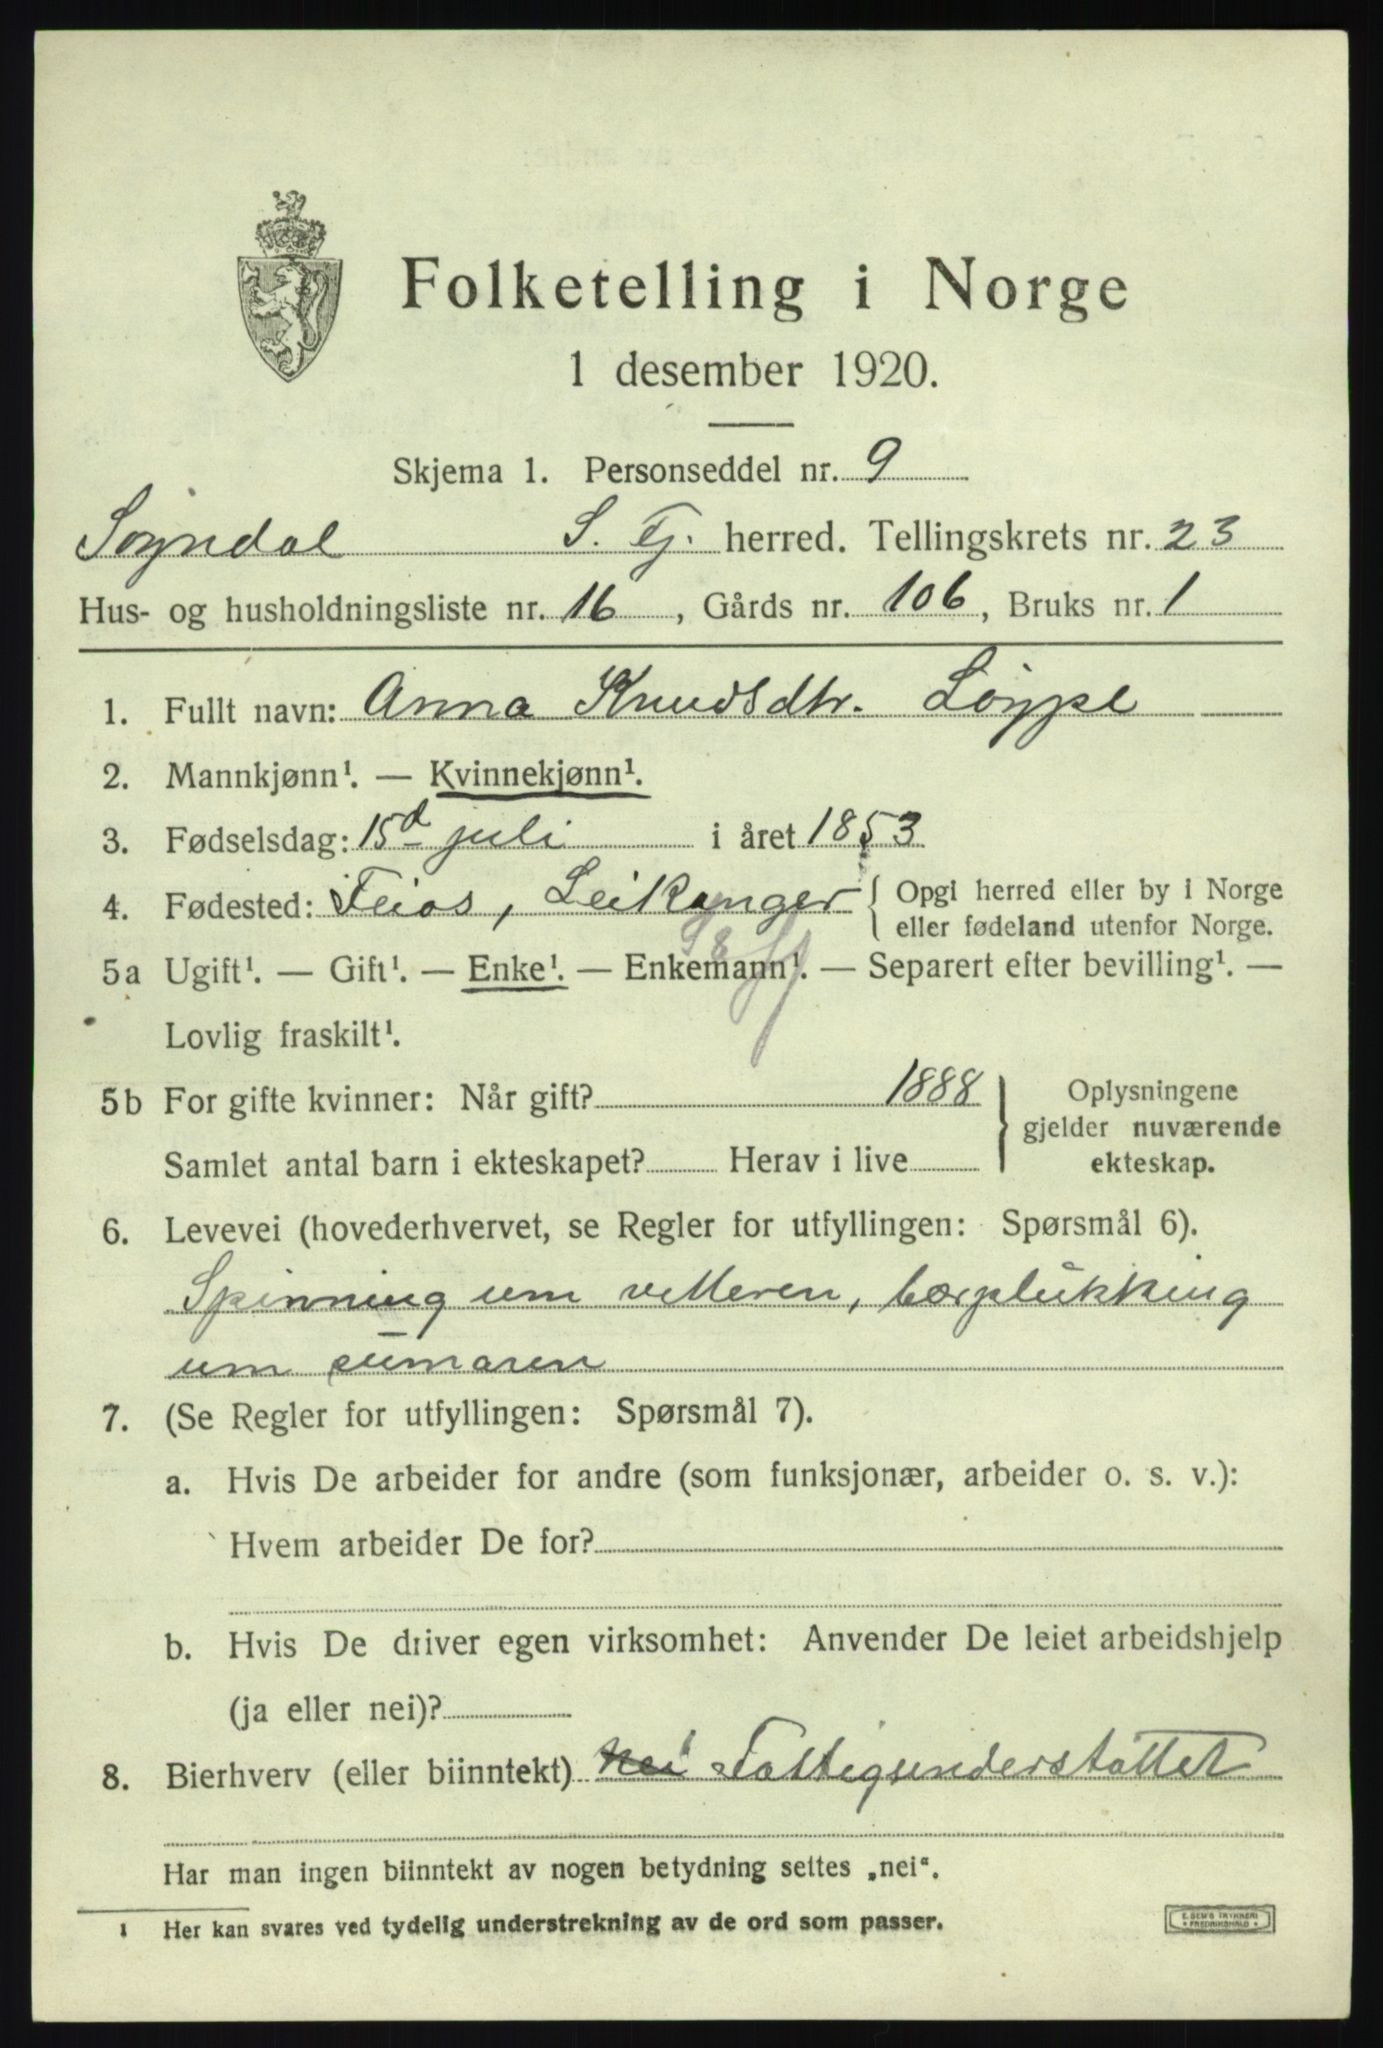 Folketelling i Norge
1 desember 1920.
Skjema 1. Personseddel nr. 9
Sogndal S. Fj. herred. Tellingskrets nr. 23
Hus- og husholdningsliste nr. 16, Gårds nr. 106, Bruks nr. 1
1. Fullt navn: Anna Knudsdtr. Løype
2. Mannkjønn¹. — Kvinnekjønn¹.
3. Fødselsdag: 15d juli i året 1853
4. Fødested: Feios, Leikanger { Opgi herred eller by i Norge
eller fødeland utenfor Norge.
S & Fj
5a Ugift¹. — Gift¹. — Enke¹. — Enkemann¹. — Separert efter bevilling¹. —
Lovlig fraskilt¹.
5b For gifte kvinner: Når gift? 1888
Samlet antal barn i ekteskapet? Herav i live
Oplysningene
gjelder nuværende
ekteskap.
6. Levevei (hovederhvervet, se Regler for utfyllingen: Spørsmål 6).
Spinning um vetteren, bærplukking
um sumaren
7. (Se Regler for utfyllingen: Spørsmål 7).
a. Hvis De arbeider for andre (som funksjonær, arbeider o. s. v.):
Hvem arbeider De for?
b. Hvis De driver egen virksomhet: Anvender De leiet arbeidshjelp
(ja eller nei)?
8. Bierhverv (eller biinntekt) nei Fattigunderstøttet
Har man ingen biinntekt av nogen betydning settes „nei“.
1 Her kan svares ved tydelig understrekning av de ord som passer.
E. SEM'S TRYKKERI
FREDRIKSHALD